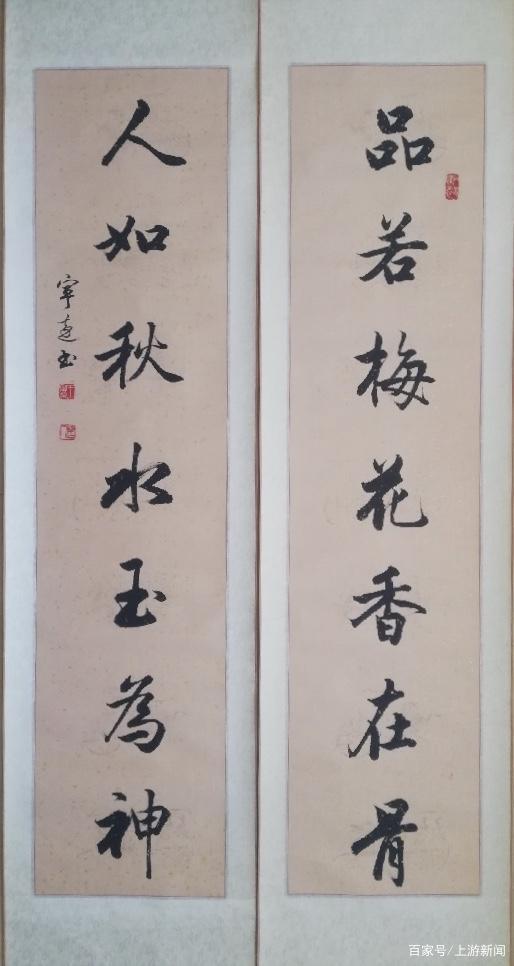 品若梅花香在骨
人如秋水玉為神
百家号/上游新闻